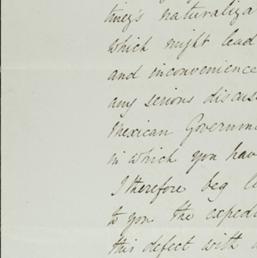 tiney's naturaliza
which might lead
and inconvenience
any serious discus
Mexican Governm
in which you hav
I therefore beg l
to you the expedi
this defect with